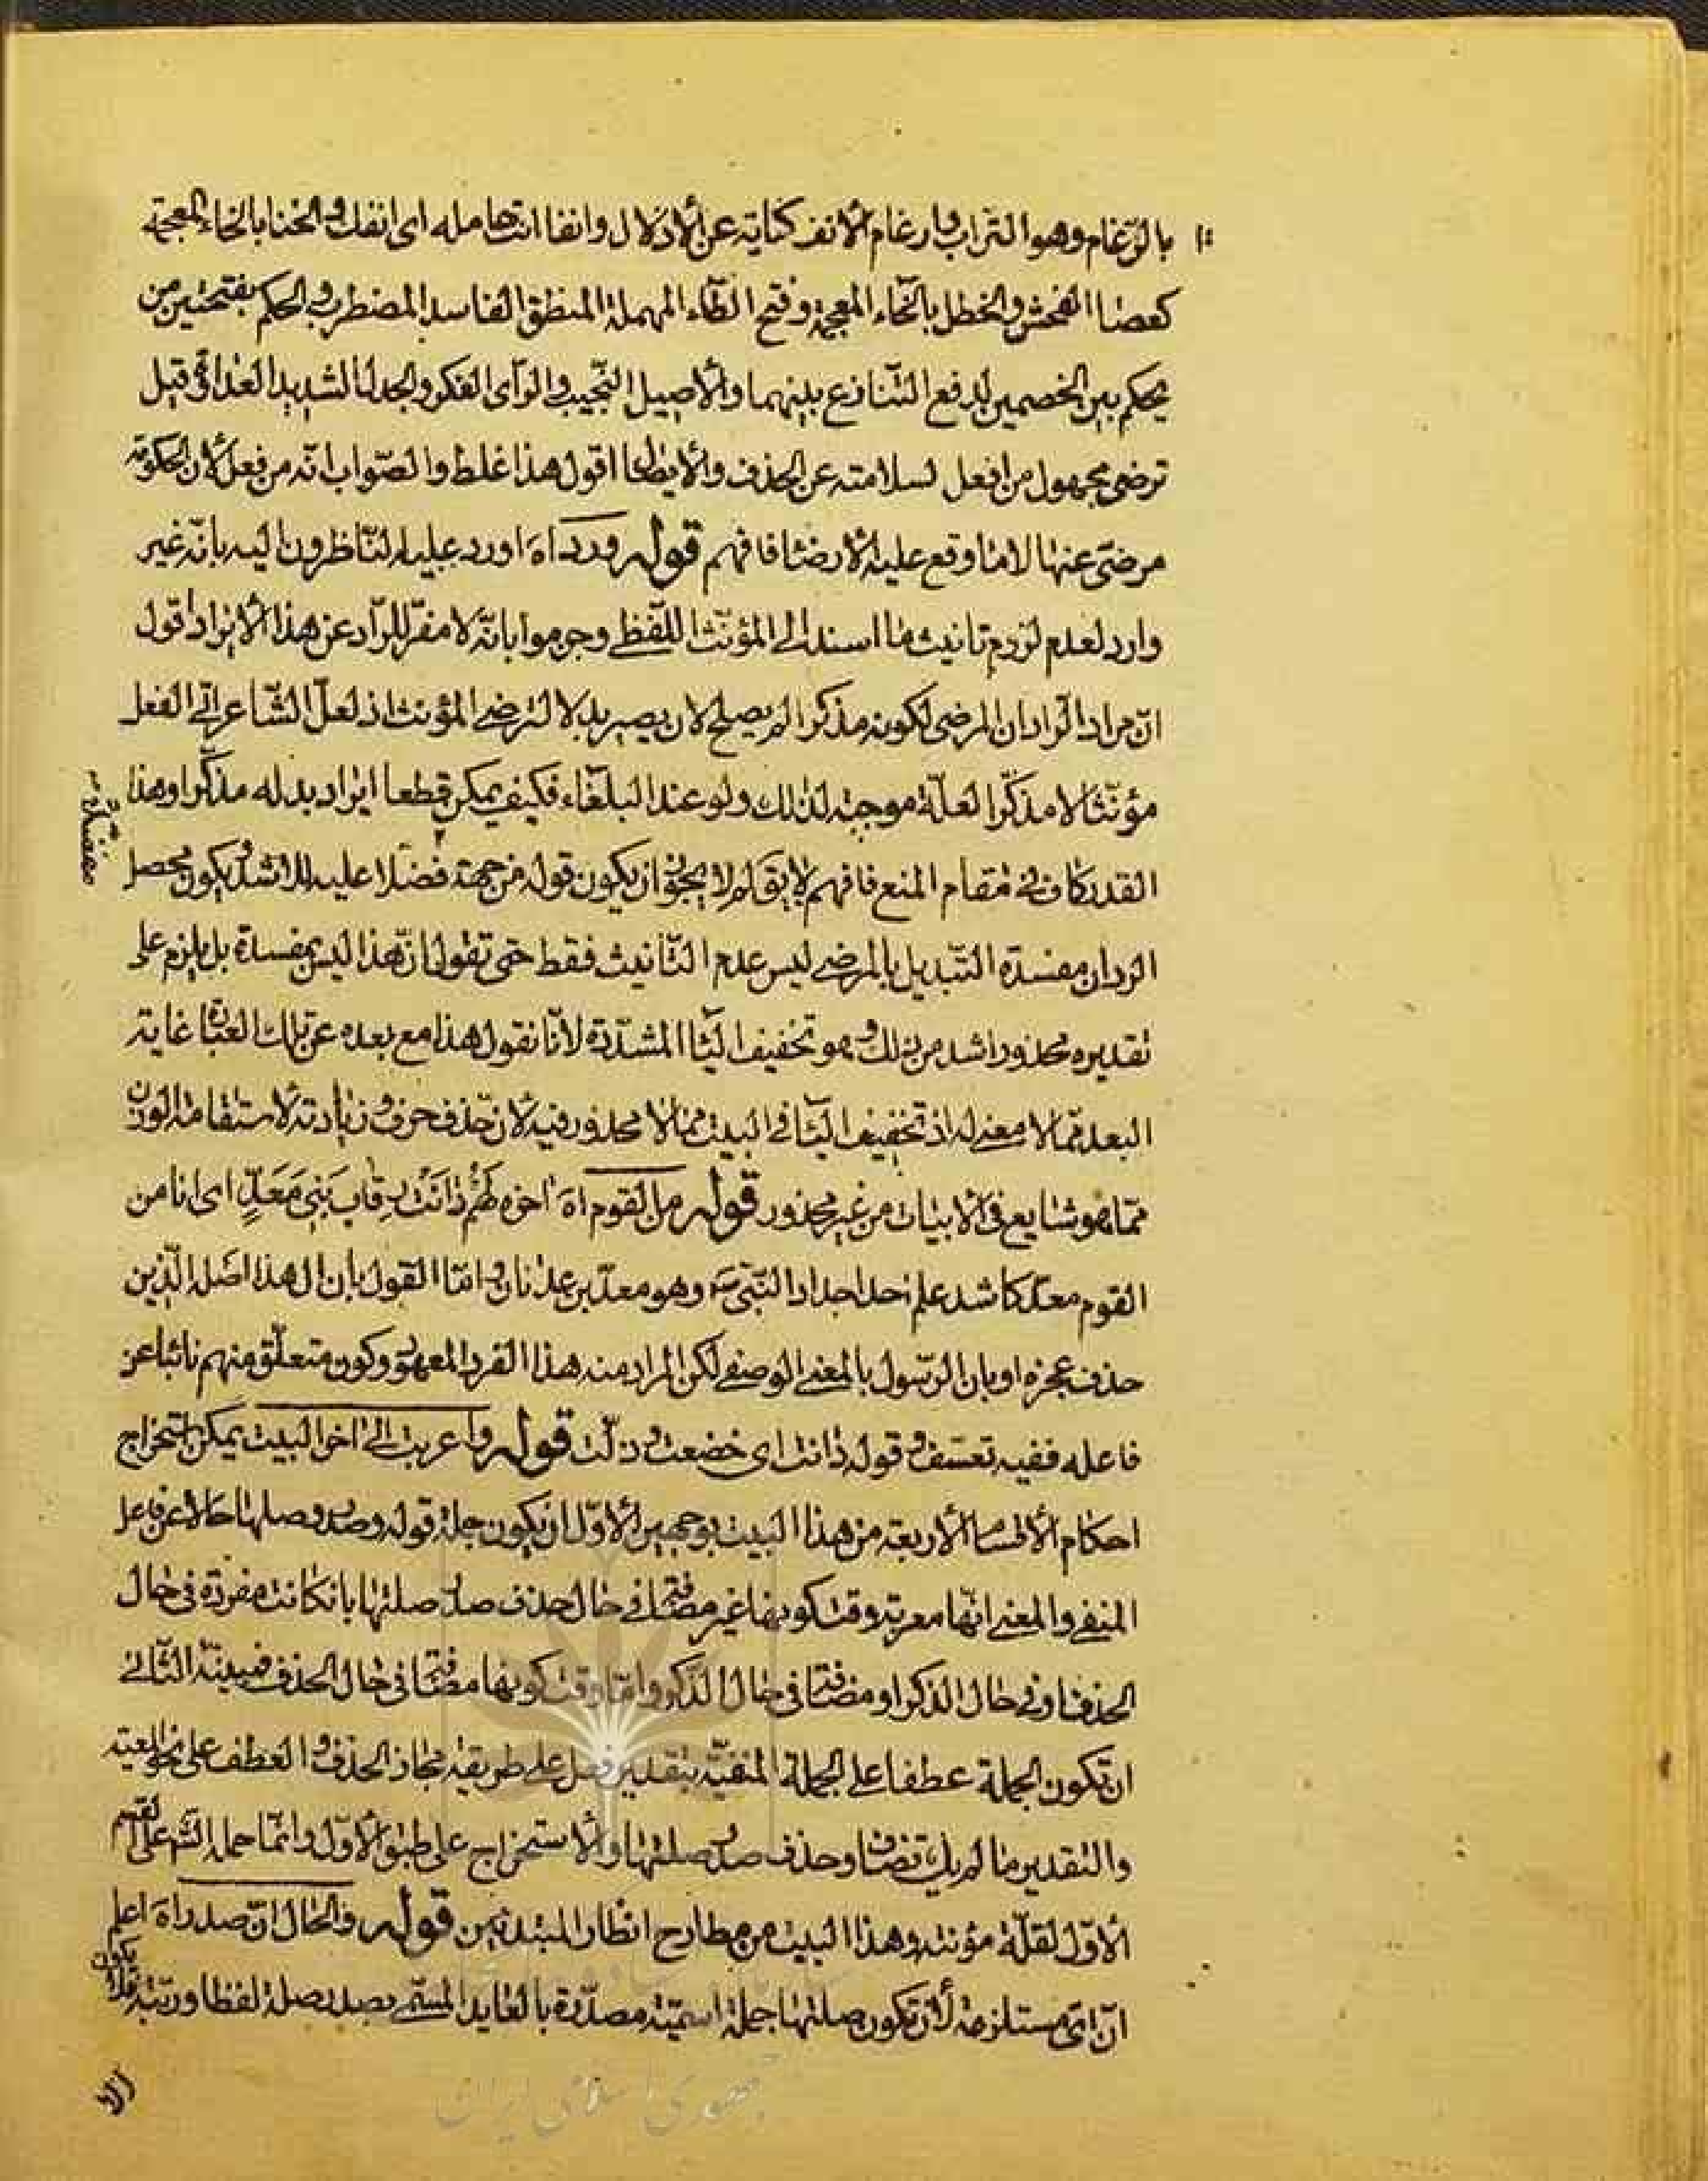 بالرّغام وهو التراب وارغام الأنف كناية عن الأذلال وانفا انتها مله اى انفك والخنا بالخاء المعجمة
كعصا الفحش والخطل بالخاء المعجمة وفتح الطاء المهملة المنطق الفاسد المضطرب والحكم بفتحتين من
يحكم بين الخصمين لدفع التنازع بينهما والأصيل النجيب والرأى الفكر والجدل الشديد العداوة قيل
ترضى مجهول من افعل لسلامته عن الحذف والايصال اقول هذا غلط والصّواب انّه من فعل لأن الحكومة
مرضىّ عنها لا ما وقع عليه الأرضا فافهم قوله وردّ اه اورد عليه النّاظرون اليه بانّه غير
وارد لعدم لزوم تانيث ما اسند الى المؤنّث اللّفظى وجزموا بانّه لا مفرّ للرّاد عن هذا الأيراد اقول
انّ مراد الرّاد ان المرضى لكونه مذكرا لم يصلح لان يصير بدلا لترضى المؤنث اذ لعلّ الشّاعر اتى الفعل
مؤنّثا لا مذكّرا لعلّة موجبة لذلك ولو عند البلغاء فكيف يمكن قطعا ايراد بدله مذكّرا وهذا
القدر كاف فى مقام المنع فافهم لا يقال لم لا يجوز ان يكون قوله من جهة فضلا عليه الأشد ويكون محصل
الرد ان مفسدة التّبديل بالمرضى ليس عدم التّأنيث فقط حتى تقول انّ هذا ليس بمفسدة بل يلزم على
تقديره محذور اشد من ذلك وهو تخفيف الياء المشدّدة لأنّا نقول هذا مع بعده عن تلك العبارة غاية
البعد ممّا لا معنى له اذ تخفيف اليا فى البيت ممّا لا محذور فيه لأن حذف حرف وزيادته لاستقامة الوزن
ممّا هو شايع فى الأبيات من غير محذور قوله من القوم اه اخره لَهُمْ دَانَتْ رِقَابُ بَنِى مَعَدٍّ اى انا من
القوم ومعدّ كاشد علم احد اجداد النّبىّ ص وهو معدّ بن عدنان وامّا القول بان ال هذا اصله الّذين
حذف عجزه او بان الرّسول بالمعنى الوصفى لكن المراد منه هذا الفرد المعهود وكون متعلّق منهم نائبا عن
فاعله ففيه تعسّف وقوله دانت اى خضعت وذلّت قوله واعربت الى اخر البيت يمكن استخراج
احكام الأقسام الأربعة من هذا البيت بوجهين الأوّل ان يكون جملة قوله وصدر وصلها حالا عن فاعل
المنفى والمعنى انّها معربة وقت كونها غير مضافة فى حال حذف صدر صلتها بان كانت مفردة فى حال
الحذف او فى حال الذكر او مضافة فى حال الذّكر وامّا وقت كونها مضافة فى حال الحذف فمبنيّة الثّانى
ان تكون الجملة عطفا على الجملة المنفيّة بتقدير فعل على طريقة مجاز الحذف والعطف على نحو المعيّة
والتقدير ما لم يك تضاف وحذف صدر صلتها والاستخراج على طبق الأوّل وانّما حمله الشّ على القسم
الأوّل لقلّة مؤنته وهذا البيت من مطارح انظار المبتدئين قوله والحال انّ صدر اه اعلم
انّ اىّ مستلزمة لأن تكون صلتها جملة اسميّة مصدّرة بالعايد المسمّى بصدر صلة لفظا ورتبة